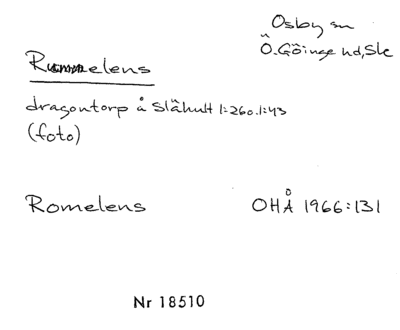 Osby sn
Ö. Göinge hd, Sk
Rummelens
dragontorp å Slähult 1:260. 1:43
(foto)
Romelens OHÅ 1966:131
Nr 18510